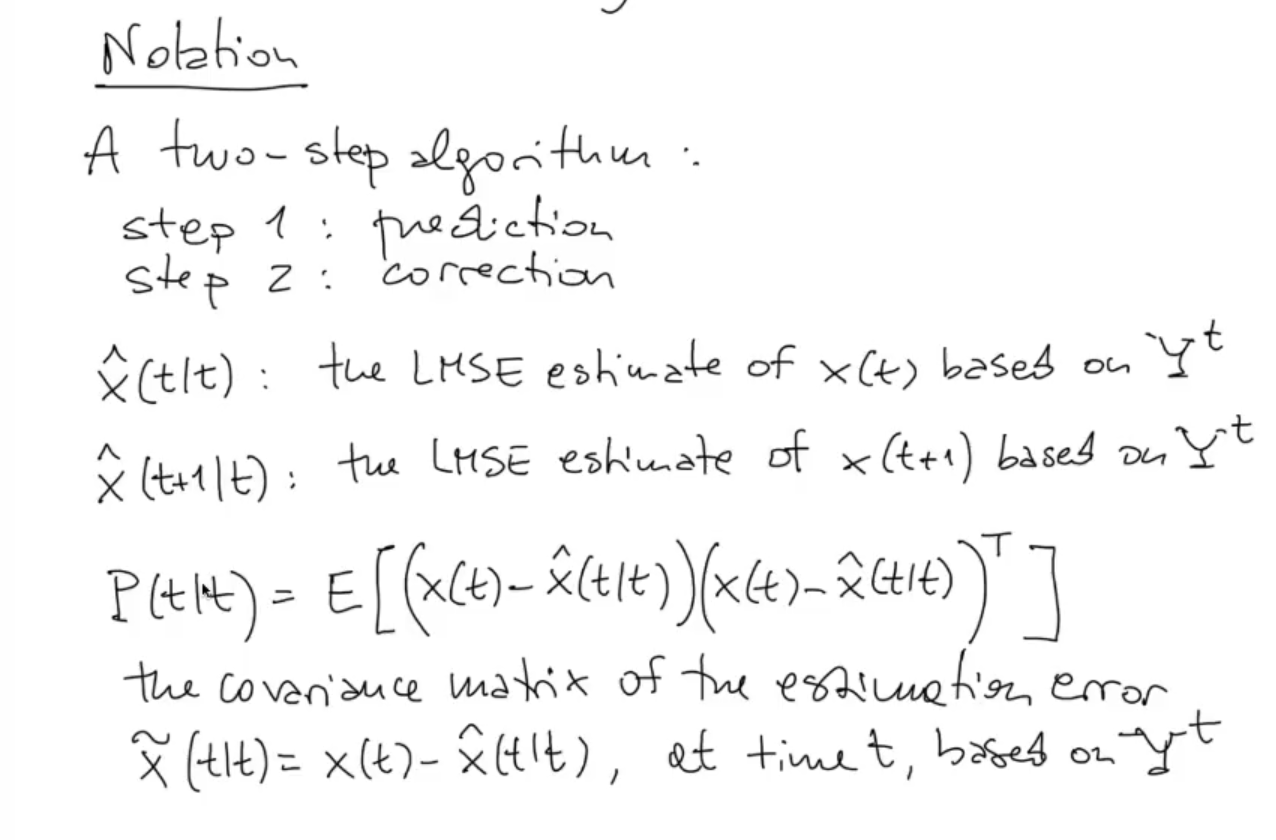 Notation
A two-step algorithm :
step 1 : prediction
step 2 : correction
x̂(t|t) : the LMSE estimate of x(t) based on Y^t
x̂(t+1|t) : the LMSE estimate of x(t+1) based on Y^t
P(t|t) = E[(x(t)-x̂(t|t))(x(t)-x̂(t|t))^T]
the covariance matrix of the estimation error
x̃(t|t) = x(t)-x̂(t|t), at time t, based on Y^t